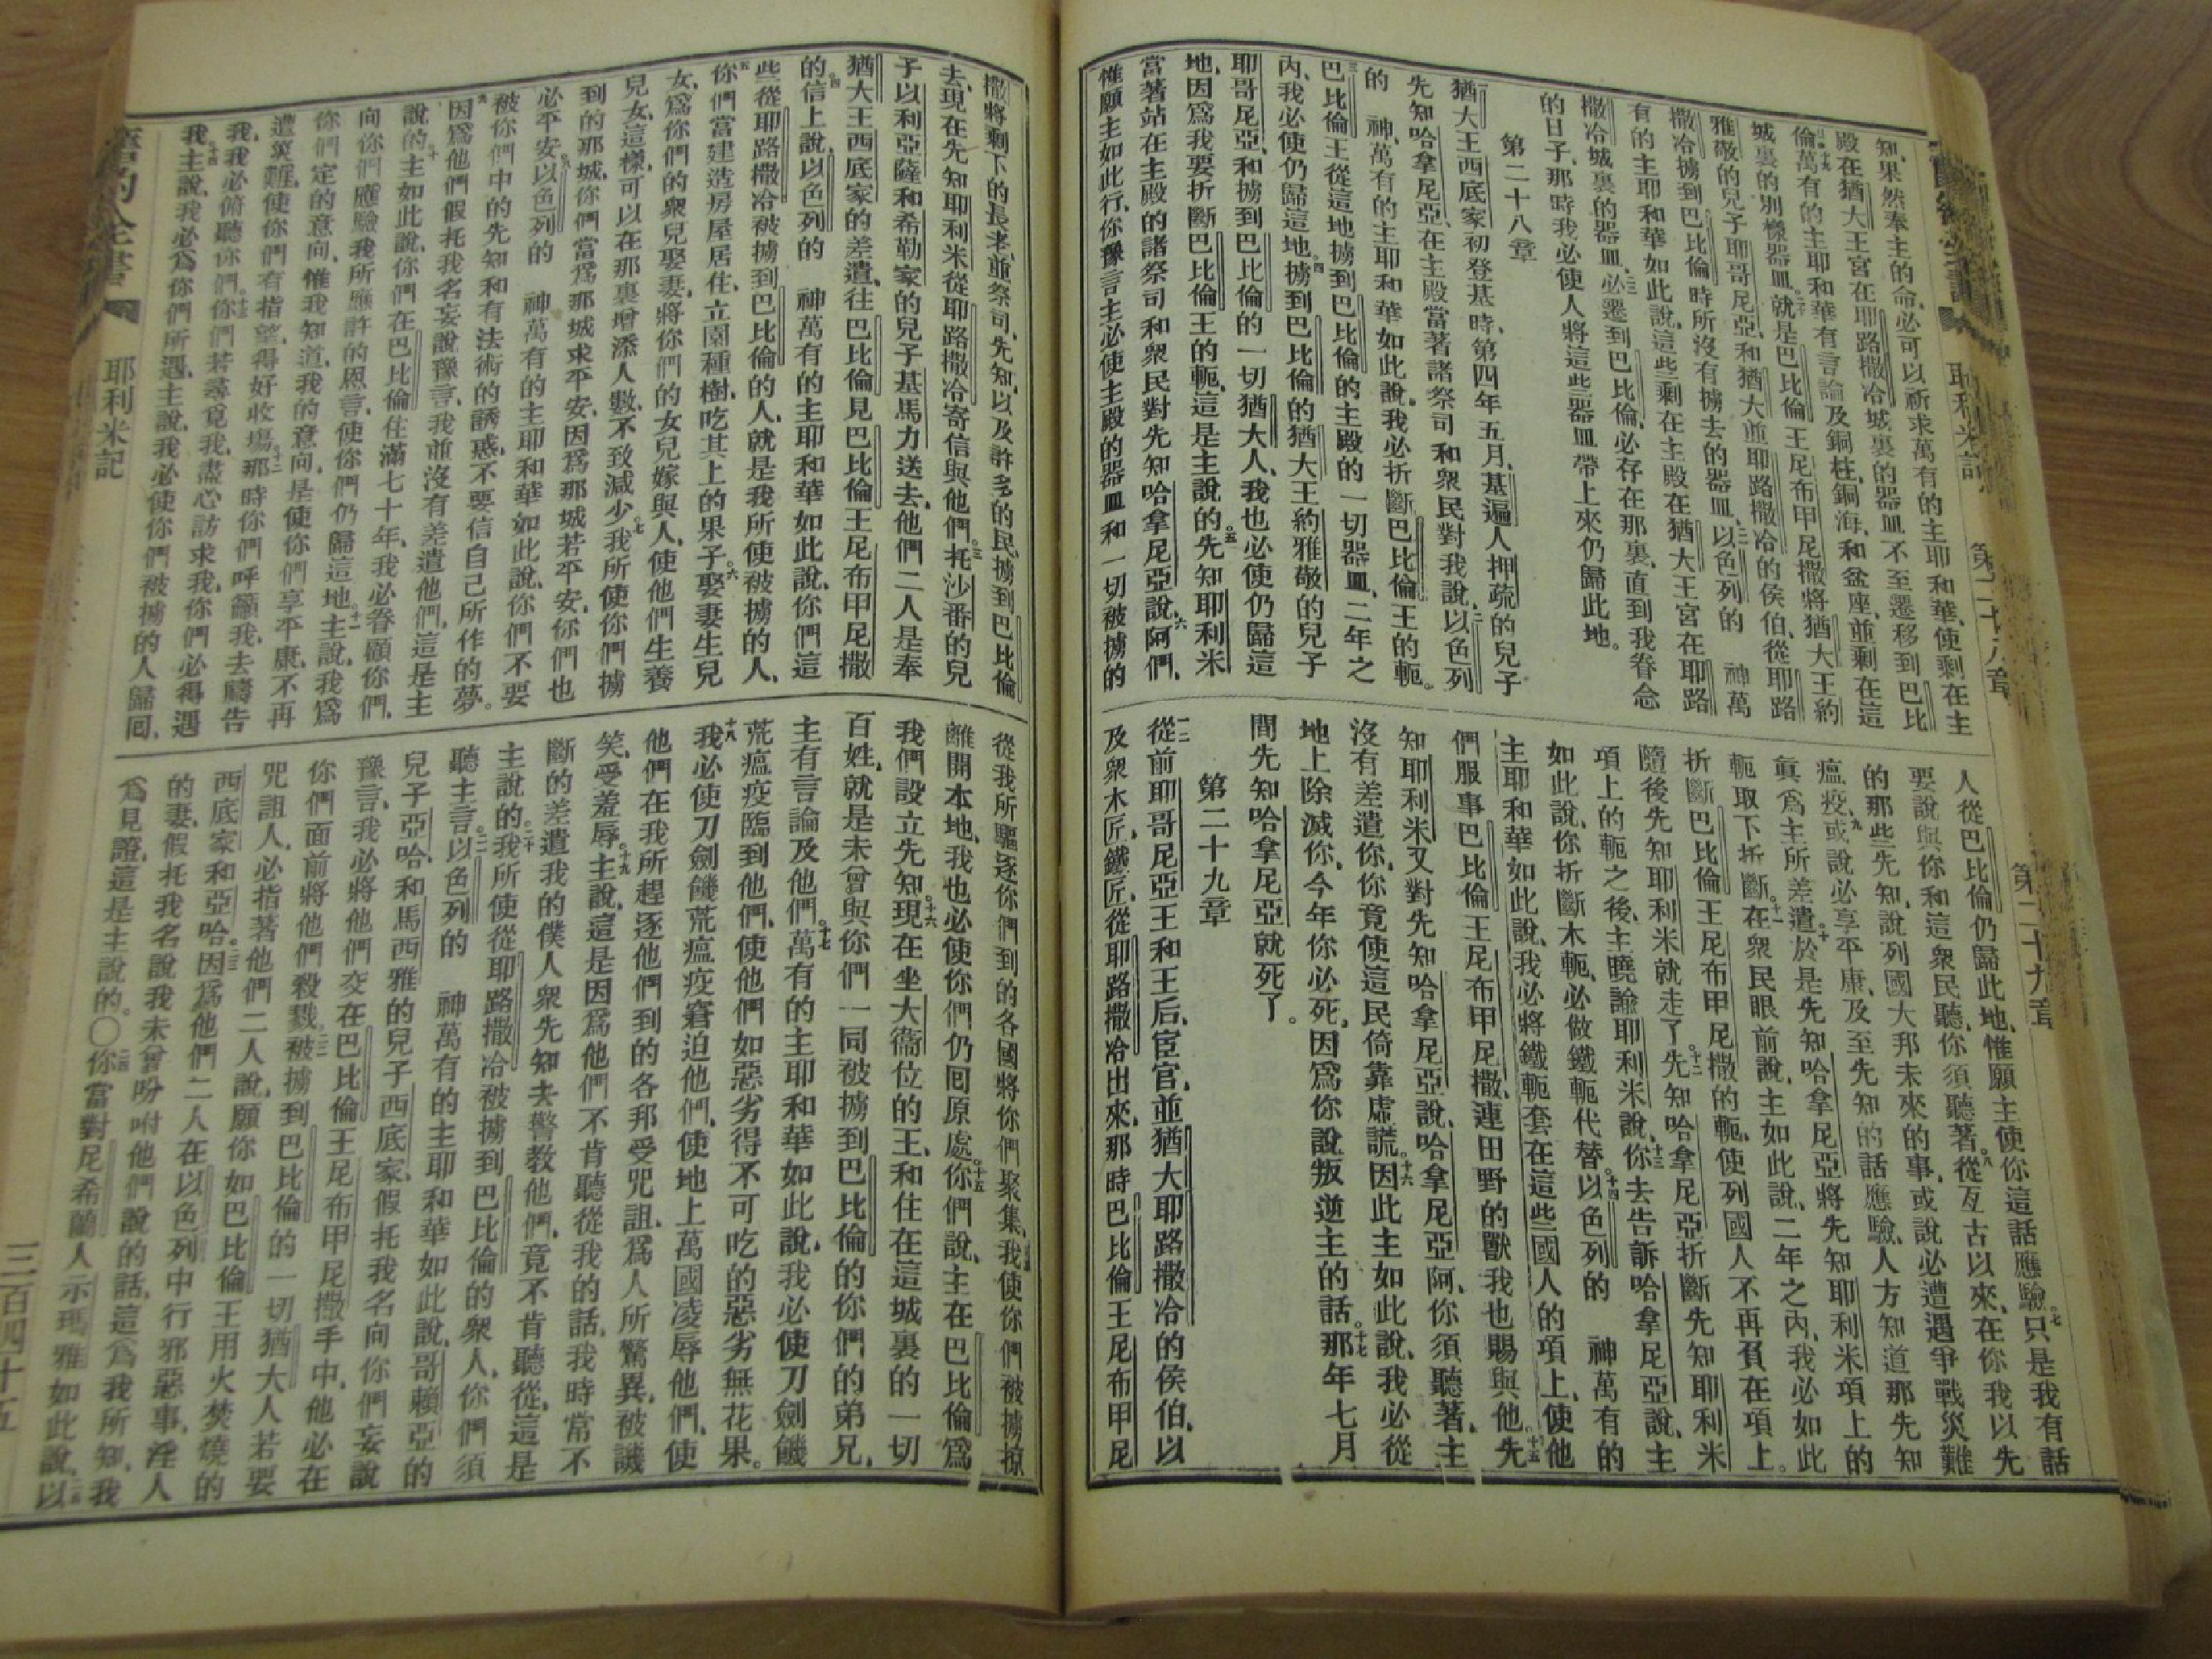 耶利米記 第二十八章 第二十九章
知、果然奉主的命、必可以祈求萬有的主耶和華、使剩在主
殿在猶大王宮在耶路撒冷城裏的器皿、不至遷移到巴比
倫、十九萬有的主耶和華有言論及銅柱、銅海、和盆座、並剩在這
城裏的別樣器皿、二十就是巴比倫王尼布甲尼撒將猶大王約
雅敬的兒子耶哥尼亞、和猶大並耶路撒冷的侯伯、從耶路
撒冷擄到巴比倫時所沒有擄去的器皿、二一以色列的 神萬
有的主耶和華如此說、這些剩在主殿在猶大王宮在耶路
撒冷城裏的器皿、二二必遷到巴比倫、必存在那裏、直到我眷念
的日子、那時我必使人將這些器皿帶上來仍歸此地。
第二十八章
猶大王西底家初登基時、第四年五月、基遍人押疏的兒子
先知哈拿尼亞、在主殿當著諸祭司和衆民對我說、二以色列
的 神、萬有的主耶和華如此說、我必折斷巴比倫王的軛。
三巴比倫王從這地擄到巴比倫的主殿的一切器皿、二年之
內、我必使仍歸這地、四擄到巴比倫的猶大王約雅敬的兒子
耶哥尼亞、和擄到巴比倫的一切猶大人、我也必使仍歸這
地、因爲我要折斷巴比倫王的軛、這是主說的。五先知耶利米
當著站在主殿的諸祭司和衆民對先知哈拿尼亞說、六阿們、
惟願主如此行、你豫言主必使主殿的器皿和一切被擄的
人從巴比倫仍歸此地、惟願主使你這話應驗。七只是我有話
要說與你和這衆民聽、你須聽著。八從亙古以來、在你我以先
的那些先知、說列國大邦未來的事、或說必遭遇爭戰災難
瘟疫、九或說必享平康、及至先知的話應驗、人方知道那先知
眞爲主所差遣。十於是先知哈拿尼亞將先知耶利米項上的
軛取下折斷。十一在衆民眼前說、主如此說、二年之內、我必如此
折斷巴比倫王尼布甲尼撒的軛、使列國人不再負在項上。
隨後先知耶利米就走了。十二先知哈拿尼亞折斷先知耶利米
項上的軛之後、主曉諭耶利米說、十三你去告訴哈拿尼亞說、主
如此說、你折斷木軛、必做鐵軛代替。十四以色列的 神萬有的
主耶和華如此說、我必將鐵軛套在這些國人的項上、使他
們服事巴比倫王尼布甲尼撒、連田野的獸我也賜與他。十五先
知耶利米又對先知哈拿尼亞說、哈拿尼亞阿、你須聽著、主
沒有差遣你、你竟使這民倚靠虛謊。十六因此主如此說、我必從
地上除滅你、今年你必死、因爲你說叛逆主的話。十七那年七月
間先知哈拿尼亞就死了。
第二十九章
一二從前耶哥尼亞王和王后、宦官、並猶大耶路撒冷的侯伯、以
及衆木匠、鐵匠、從耶路撒冷出來、那時巴比倫王尼布甲尼
撒將剩下的長老、並祭司、先知、以及許多的民、擄到巴比倫
去、現在先知耶利米從耶路撒冷寄信與他們。三托沙番的兒
子以利亞薩和希勒家的兒子基馬力送去、他們二人是奉
猶大王西底家的差遣、往巴比倫見巴比倫王尼布甲尼撒
的。四信上說、以色列的 神萬有的主耶和華如此說、你們這
些從耶路撒冷被擄到巴比倫的人、就是我所使被擄的人、
五你們當建造房屋居住、立園種樹、吃其上的果子。六娶妻生兒
女、爲你們的衆兒娶妻、將你們的女兒嫁與人、使他們生養
兒女、這樣、可以在那裏增添人數、不致減少。七我所使你們擄
到的那城、你們當爲那城求平安、因爲那城若平安、你們也
必平安。八以色列的 神萬有的主耶和華如此說、你們不要
被你們中的先知和有法術的誘惑、不要信自己所作的夢。
九因爲他們假托我名妄說豫言、我並沒有差遣他們、這是主
說的。十主如此說、你們在巴比倫住滿七十年、我必眷顧你們、
向你們應驗我所應許的恩言、使你們仍歸這地。十一主說、我爲
你們定的意向、惟我知道、我的意向、是使你們享平康、不再
遭災難、使你們有指望、得好收場。十二那時你們呼籲我、去禱告
我、我必俯聽你們。十三你們若尋覓我、盡心訪求我、你們必得遇
我。十四主說、我必爲你們所遇、主說、我必使你們被擄的人歸回、
從我所驅逐你們到的各國將你們聚集、我使你們被擄掠
離開本地、我也必使你們仍回原處。十五你們說、主在巴比倫爲
我們設立先知。十六現在坐大衞位的王、和住在這城裏的一切
百姓、就是未曾與你們一同被擄到巴比倫的你們的弟兄、
主有言論及他們。十七萬有的主耶和華如此說、我必使刀劍饑
荒瘟疫臨到他們、使他們如惡劣得不可吃的惡劣無花果。
十八我必使刀劍饑荒瘟疫窘迫他們、使地上萬國凌辱他們、使
他們在我所趕逐他們到的各邦受咒詛、爲人所驚異、被譏
笑、受羞辱。十九主說、這是因爲他們不肯聽從我的話、我時常不
斷的差遣我的僕人衆先知去警教他們、竟不肯聽從、這是
主說的。二十我所使從耶路撒冷被擄到巴比倫的衆人、你們須
聽主言。二一以色列的 神萬有的主耶和華如此說、哥賴亞的
兒子亞哈、和馬西雅的兒子西底家、假托我名向你們妄說
豫言、我必將他們交在巴比倫王尼布甲尼撒手中、他必在
你們面前將他們殺戮。二二被擄到巴比倫的一切猶大人若要
咒詛人、必指著他們二人說、願你如巴比倫王用火焚燒的
西底家和亞哈。二三因爲他們二人在以色列中行邪惡事、淫人
的妻、假托我名說我未曾吩咐他們說的話、這爲我所知、我
爲見證、這是主說的。〇二四你當對尼希蘭人示瑪雅如此說、二五以
耶利米記
三百四十五